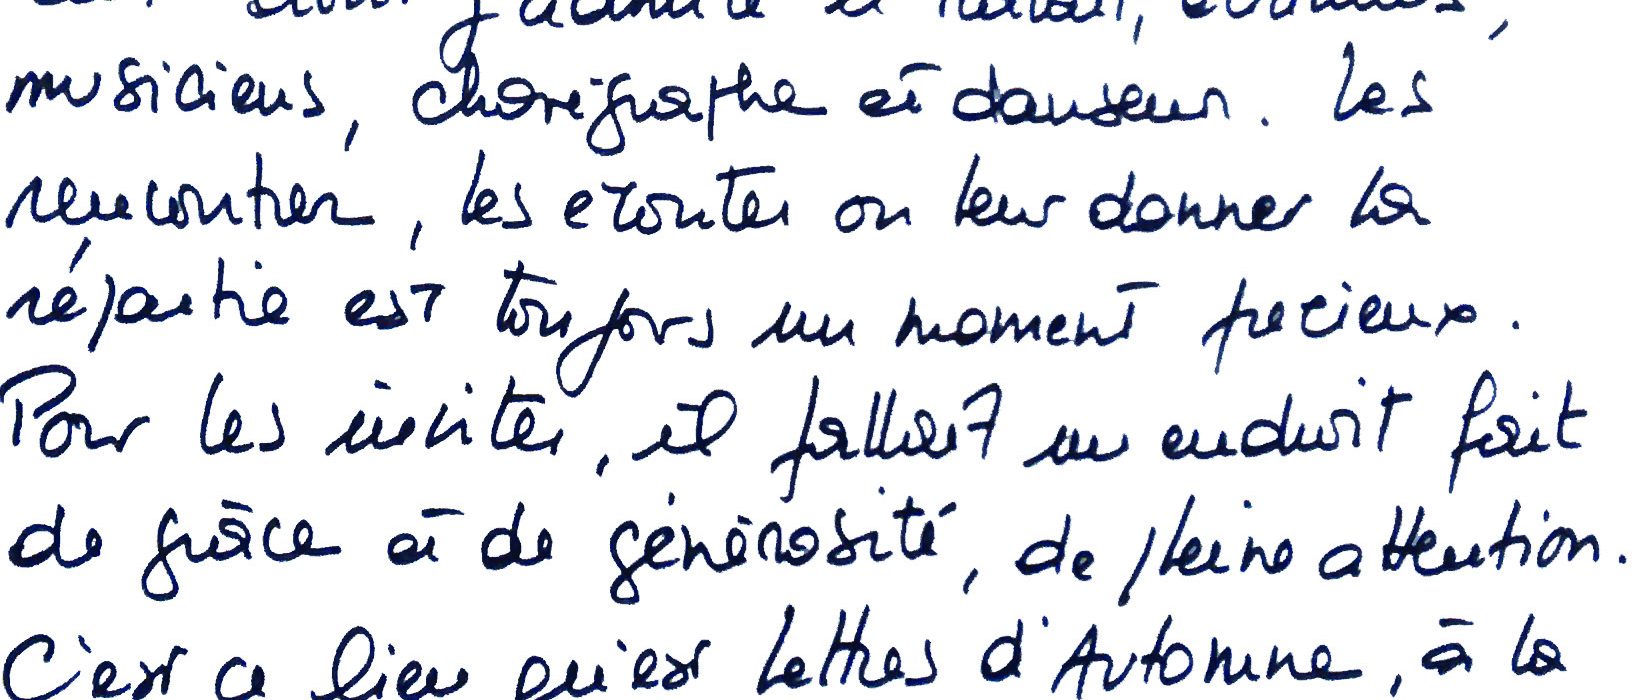 dont j'admire le travail,
musiciens, chorégraphe et danseur. Les
rencontrer, les écouter ou leur donner la
répartie est toujours un moment précieux.
Pour les inviter, il fallait un endroit fait
de grâce et de générosité, de pleine attention.
C'est ce lieu qu'est Lettres d'Automne, à la